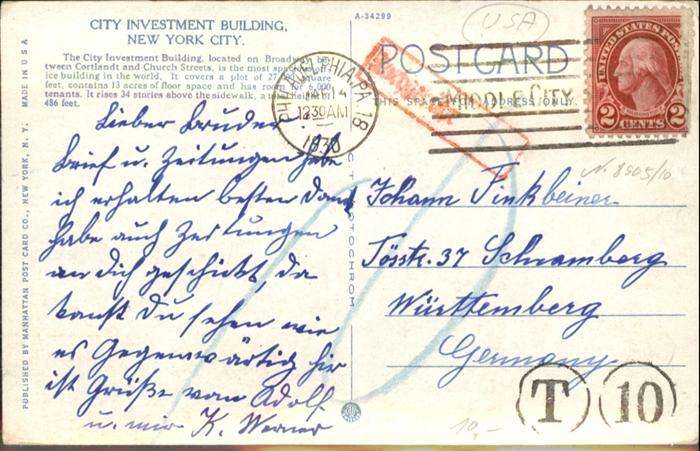 CITY INVESTMENT BUILDING,
NEW YORK CITY.
The City Investment Building, located on Broadway be-
tween Cortlandt and Church Streets, is the most spacious off-
ice building in the world. It covers a plot of 27,000 square
feet, contains 13 acres of floor space and has room for 6,000
tenants. It rises 34 stories above the sidewalk, a total height of
486 feet.
MADE IN U S A
PUBLISHED BY MANHATTAN POST CARD CO., NEW YORK, N. Y.
A-34299
POSTCARD
THIS SPACE FOR ADDRESS ONLY.
USA
PHILADELPHIA, PA. 18
14
1230 AM
1930
MIDDLE CITY
UNITED STATES POSTAGE
2 2
CENTS
Lieber Bruder
Brief u. Zeitungen habe
ich erhalten besten Dank
habe auch Zeitungen
an dich geschickt, da
kanst Du sehen wie
es Gegenwärtig hir
ist Grüße von Adolf
u. mir K. Werner
Johann Finkbeiner
Tösstr. 37 Schramberg
Württemberg
Germany
T
10
10.-